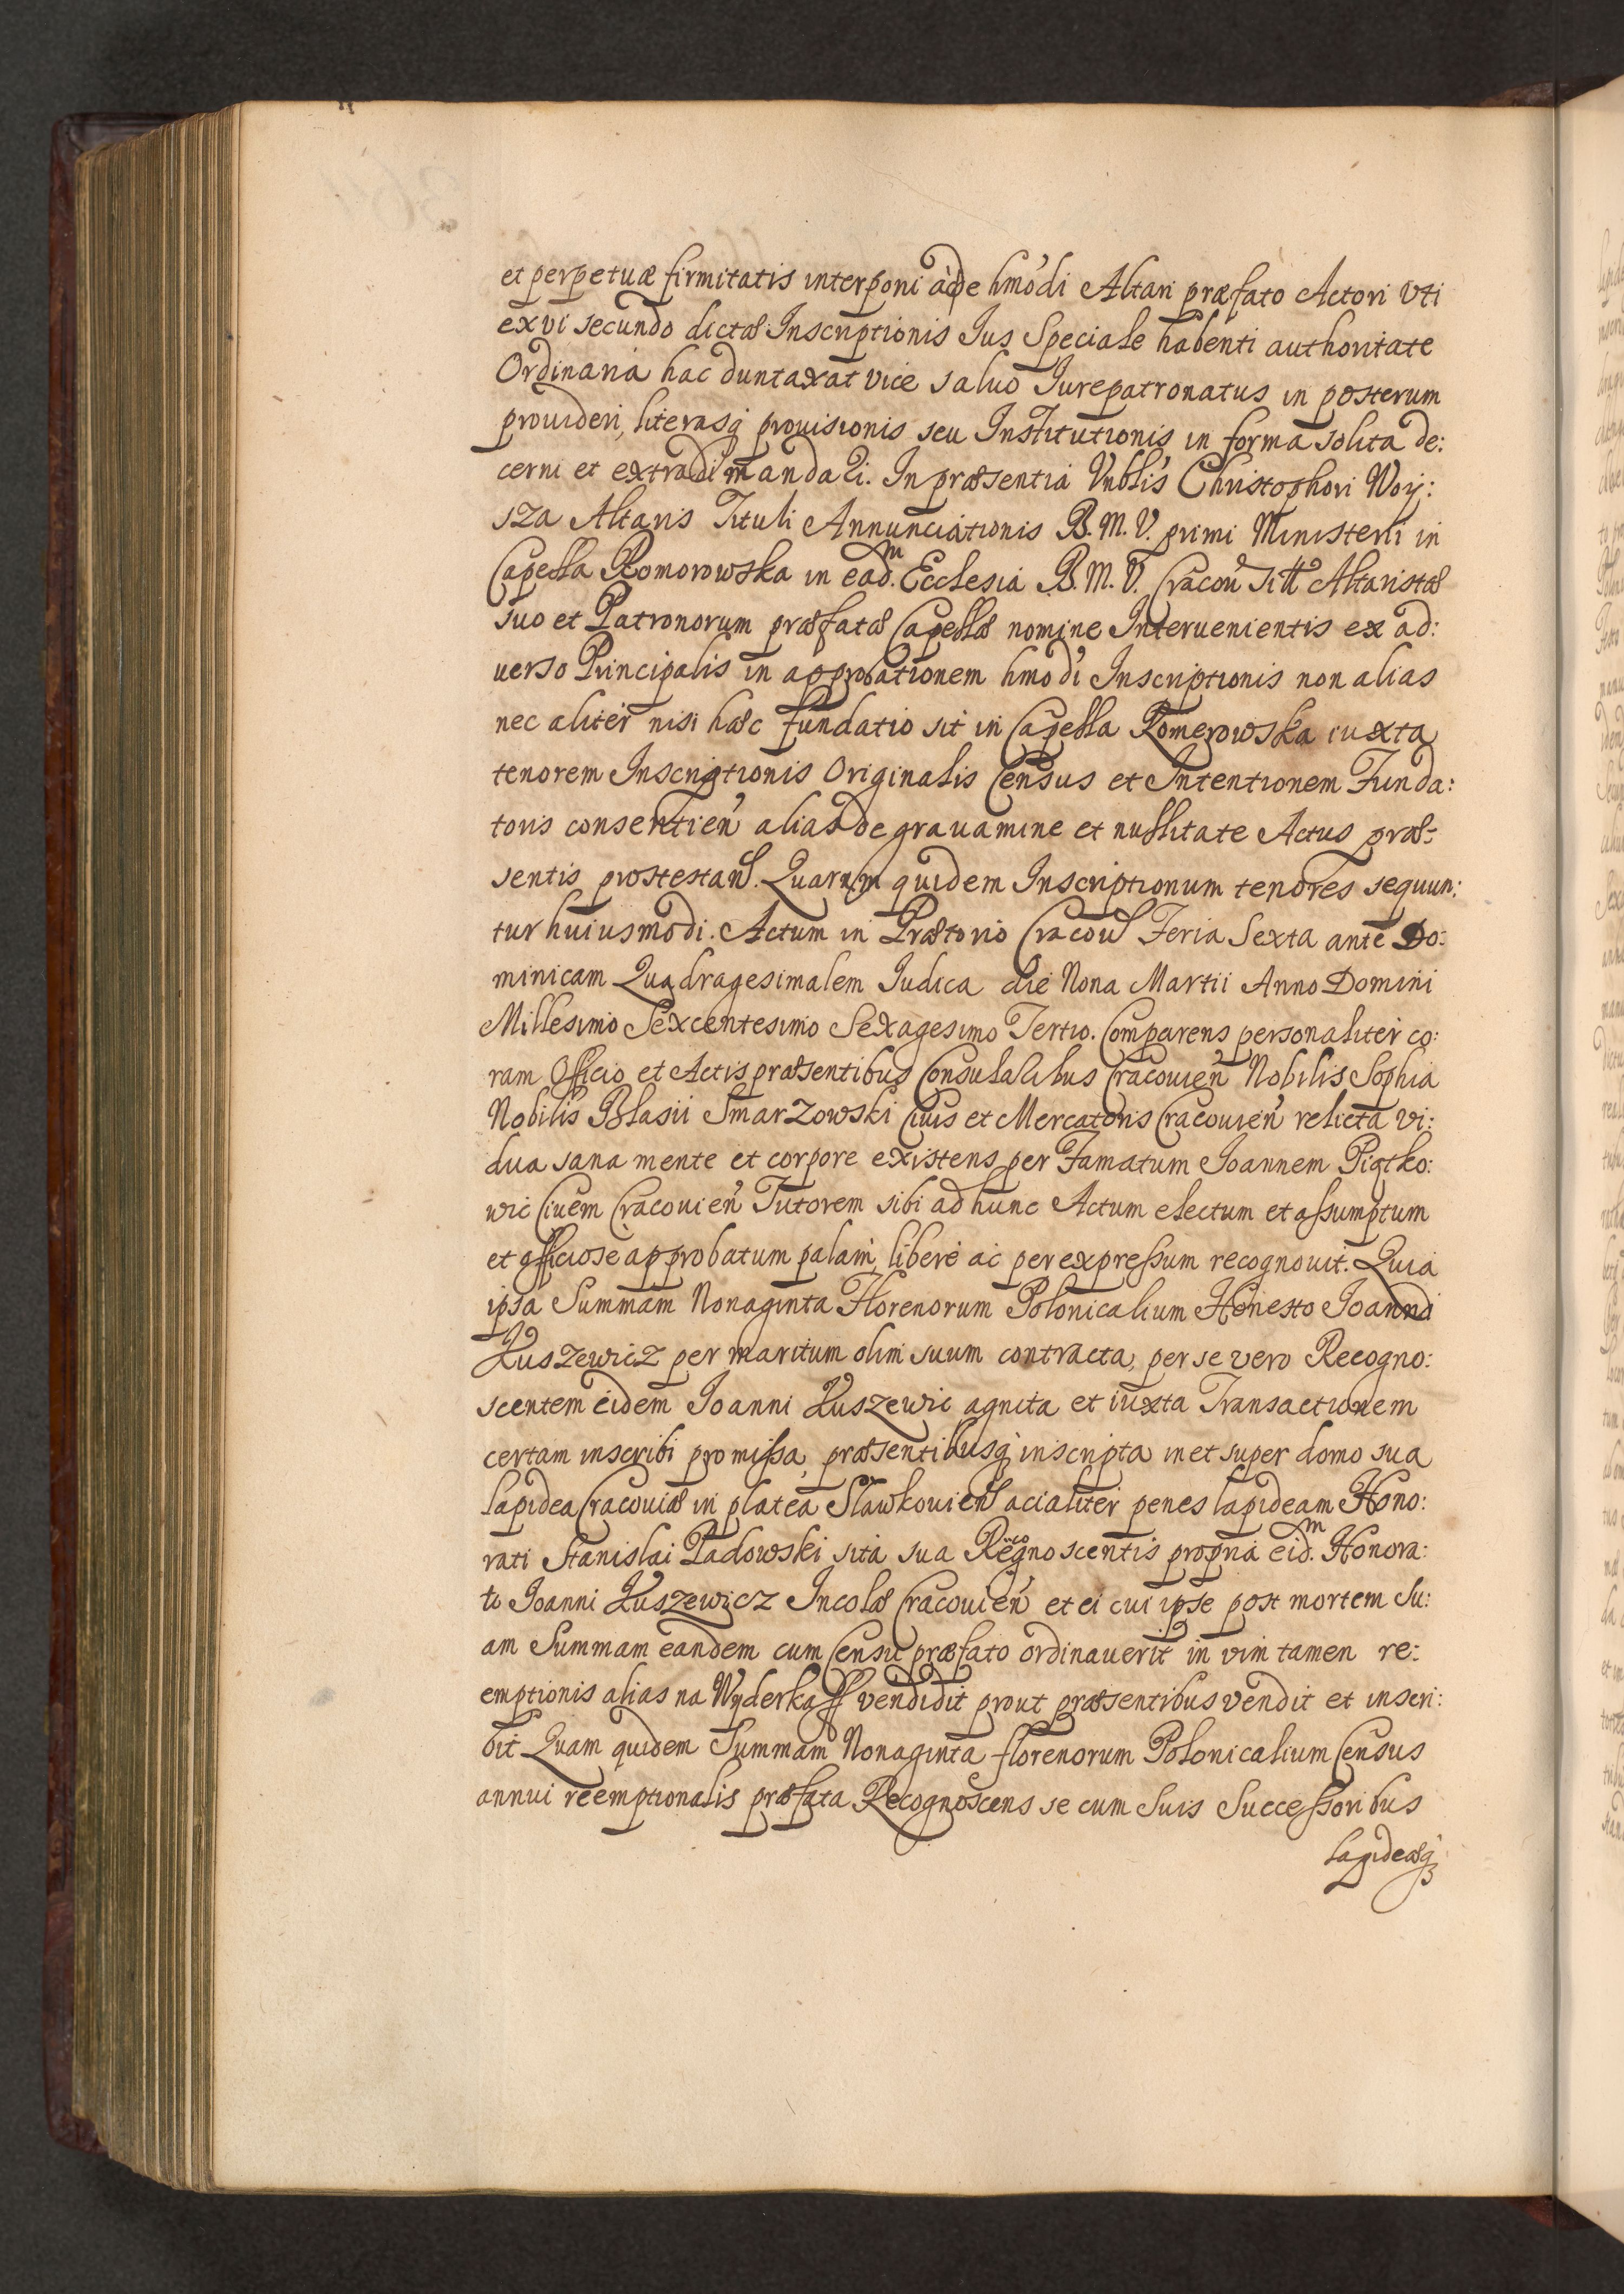 et perpetuæ firmitatis interponi àc de hmõdi Altari præfato Actori Vti
ex vi secundo dictæ Inscriptionis Ius Speciale habenti authoritate
Ordinaria hac duntaxat vice saluo Iurepatronatus in posterum
prouideri, literasq̢ prouisionis seu Institutionis in forma solita de:
cerni et extradi mandari. In præsentia Vnblis Christophori Woy:
sza Altaris Tituli Annunciationis B. M. V. primi Ministerii in
Capella Komorowska in ead.m Ecclesia B. M. V. Cracou Altaristæ
suo et Patronorum præfatæ Capellæ nomine Interuenientis ex ad:
uerso Principalis in approbationem hmodi Inscriptionis non alias
nec aliter nisi hæc fundatio sit in Capella Komerowska iuxta
tenorem Inscriptionis Originalis Census et Intentionem Funda:
toris consentien̕ alias de grauamine et nullitate Actus præ:
sentis prostestan. Quarum quidem Inscriptionum tenores sequun:
tur huiusmodi. Actum in Prætorio Cracou Feria Sexta ante Do:
minicam Quadragesimalem Iudica die Nona Martii Anno Domini
Millesimo Sexcentesimo Sexagesimo Tertio. Comparens personaliter co:
ram Officio et Actis præsentibus Consularibus Cracouien̕ Nobilis Sophia
Nobilis Blasii Smarzowski Ciuis et Mercatoris Cracouien̕ relicta vi:
dua sana mente et corpore existens per Famatum Joannem Piątko:
wic Ciuem Cracouien̕ Tutorem sibi ad hunc Actum electum et assumptum
et officiose approbatum palam, libere ac per expressum recognouit. Quia
ipsa Summam Nonaginta Florenorum Polonicalium Honesto Joanni
Kuszewicz per maritum olim suum contracta, per se vero Recogno:
scentem eidem Joanni Kuszewic agnita et iuxta Transactionem
certam inscribi promissa, præsentibusq̢ inscripta in et super domo sua
lapidea Cracouiæ in platea Slawkouien acialiter penes lapideam Hono:
rati Stanislai Padowski sita sua Recognoscentis propria eid.m Honora:
to Joanni Kuszewicz Incolæ Cracouien̕ et ei cui ipse post mortem Su:
am Summam eandem cum Censu præfato ordinauerit in vim tamen re:
emptionis alias na Wyderkaff vendidit prout præsentibus vendit et inscri:
bit Quam quidem Summam Nonaginta florenorum Polonicalium Census
annui reemptionalis præfata Recognoscens se cum Suis Successoribus
lapideæq̢